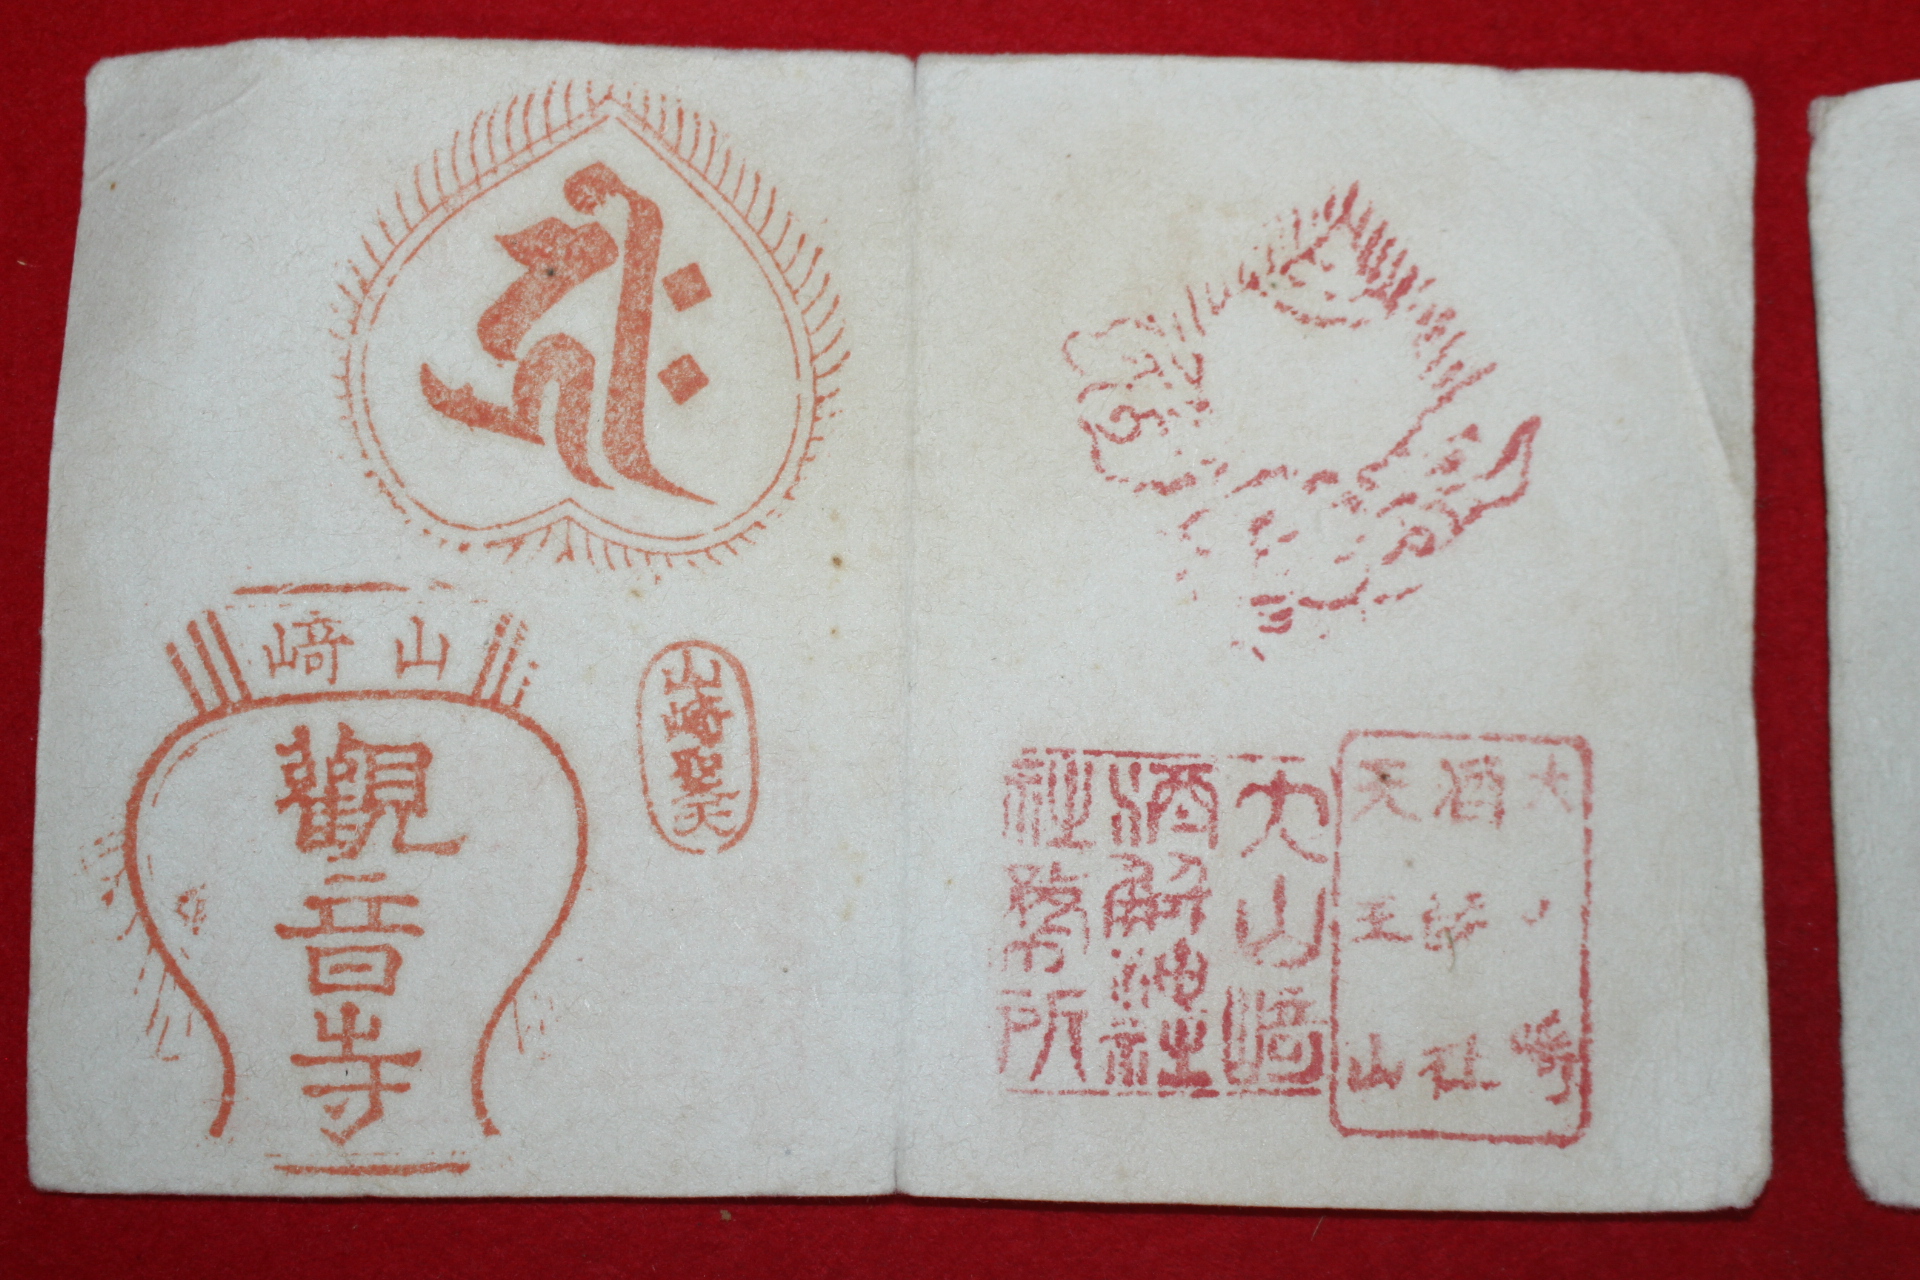 𑖮𑖿𑖨𑖱𑖾
山﨑
觀音寺
山﨑聖天
大山﨑
酒解神社
社務所
大ノ﨑
酒解社
天王山